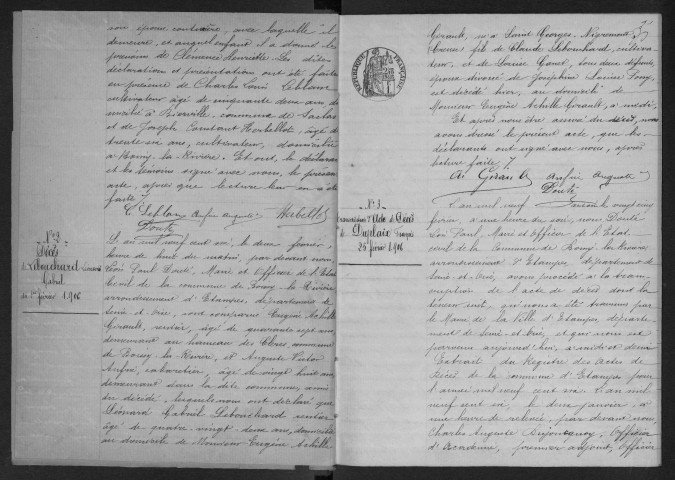 son épouse contraire, avec laquelle il
demeure, et auquel enfant il a donné les
prénoms de Clémence Henriette. Les dites
déclaration et présentation ont été faites
en présence de Charles Louis Leblanc
cultivateur âgé de cinquante deux ans, do-
micilié à Bierville, commune de Saclas
et de Joseph Constant Hortillot, âgé de
trente six ans, cultivateur, domicilié
à Boissy-la-Rivière. Et ont, le déclarant
et les témoins signé avec nous, le présent
acte, après que lecture leur en a été
faite.
C. Leblanc
N° 2
Décès
de Lebouchard Léonard
Gabriel
du 1er février 1906
L'an mil neuf cent six, le deux février
heure de huit du matin, par devant nous
Léon Paul Maire et Officier de l'Etat
Civil de la commune de Boissy-la-Rivière
arrondissement d'Etampes, département de
Seine-et-Oise, sont comparus Eugène Achille
Girault, rentier, âgé de quarante sept ans
demeurant au hameau des commune
de Boissy-la-Rivière, et Auguste Victor
cabaretier, âgé de vingt huit ans
demeurant dans la dite commune, amis
du décédé, lesquels nous ont déclaré que
Léonard Gabriel Lebouchard rentier
âgé de quatre-vingt deux ans, domicilié
au domicile de Monsieur Eugène Achille
Girault, né à Saint Georges
fils de Claude Lebouchard, cultiva-
teur, et de Louise tous deux défunts,
époux divorcé de Joséphine Louise
est décédé hier, au domicile de
Monsieur Eugène Achille Girault, à midi.
Et après nous être assuré du décès, nous
avons dressé le présent acte, que les
déclarants ont signé avec nous, après
lecture faite.
A. Girault
REPUBLIQUE FRANÇAISE
N° 3
Transcription d'Acte de Décès
de
25 février 1906
L'an mil neuf cent six le vingt cinq
février, à une heure du soir, nous
Léon Paul, Maire et Officier de l'Etat
civil de la Commune de Boissy-la-Rivière
arrondissement d'Etampes, département de
Seine-et-Oise, avons procédé à la trans-
cription de l'acte de décès dont la
teneur suit, qui nous a été transmis par
le Maire de la Ville d'Etampes, départe-
ment de Seine-et-Oise, et que nous est
parvenu aujourd'hui, à midi et demi
Extrait du Registre des Actes de
Décès de la commune d'Etampes pour
l'année mil neuf cent six. L'an mil
neuf cent six, le deux janvier, à
une heure de relevée, par devant nous
Charles Auguste Officier
d'Académie, premier adjoint, Officier